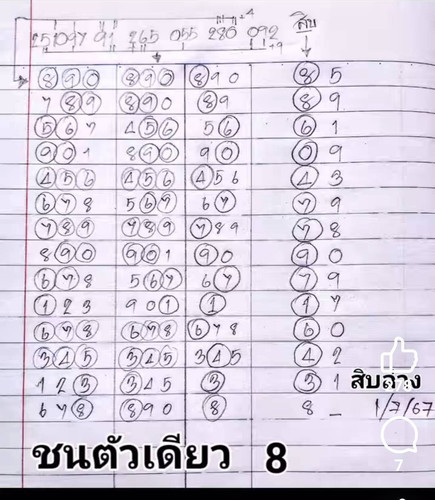 สิบ
890 890 890 85
789 890 89 89
567 456 56 61
901 890 90 09
456 456 456 43
678 567 67 79
789 789 789 78
890 901 90 90
678 567 67 79
123 901 1 17
678 678 678 60
345 345 345 42
123 345 3 31
678 890 8 8 _
สิบล่าง
1/7/67
ชนตัวเดียว 8
7